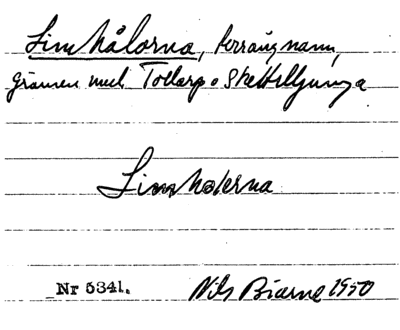 Limhålorna, terrängnamn,
gränsen med Tollarp o Skättilljunga
Limhalerna
Nr 5341. Nils Bjarne 1950